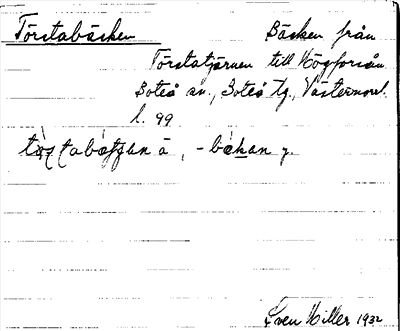 Törstabäcken Bäcken från
Törstatjärnen till Högforsån.
Boteå sn., Boteå tg., Västernorrl.
l. 99
Sven Hiller 1932